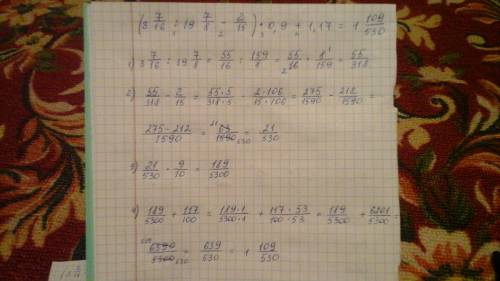 (3 7/16 : 19 7/8 − 2/15) · 0,9 + 1,17 = 1 109/530
1) 3 7/16 : 19 7/8 = 55/16 : 159/8 = 55/16 · 8/159 = 55/318
2) 55/318 − 2/15 = 55·5/318·5 − 2·106/15·106 = 275/1590 − 212/1590 =
275−212/1590 = 63/1590 = 21/530
3) 21/530 · 9/10 = 189/5300
4) 189/5300 + 117/100 = 189·1/5300·1 + 117·53/100·53 = 189/5300 + 6201/5300 =
6390/5300 = 639/530 = 1 109/530